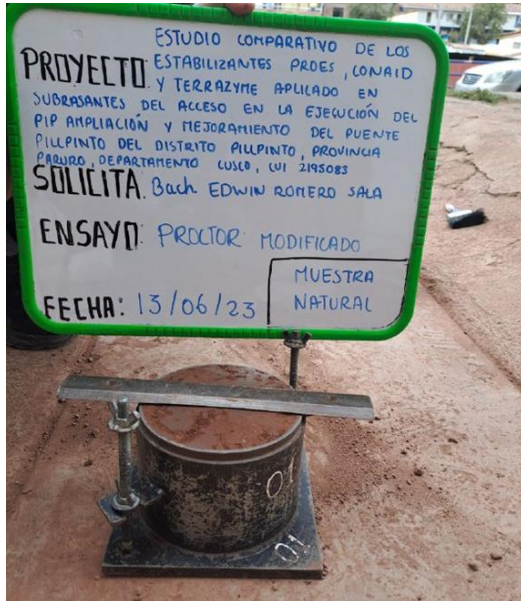 PROYECTO: ESTUDIO COMPARATIVO DE LOS
ESTABILIZANTES PROES, CONAID
Y TERRAZYME APLICADO EN
SUBRASANTES DEL ACCESO EN LA EJECUCIÓN DEL
PIP AMPLIACIÓN Y MEJORAMIENTO DEL PUENTE
PILLPINTO DEL DISTRITO PILLPINTO, PROVINCIA
PARURO, DEPARTAMENTO CUSCO, CUI 2195083
SOLICITA: Bach. EDWIN ROMERO SALA
ENSAYO: PROCTOR MODIFICADO
MUESTRA
NATURAL
FECHA: 13/06/23
01
01